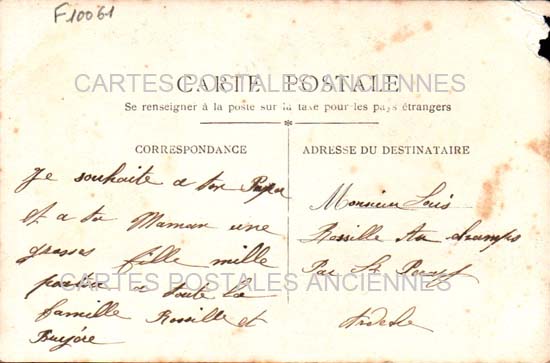 F10061
CARTES POSTALES ANCIENNES
CARTE POSTALE
Se renseigner à la poste sur la taxe pour les pays étrangers
CORRESPONDANCE
ADRESSE DU DESTINATAIRE
Je souhaite a ton Papa
et a ta Maman une
grosses fille mille
a toute la
famille Rossille et
Monsieur Louis
Rossille Au champs
Par St
CARTES POSTALES ANCIENNES